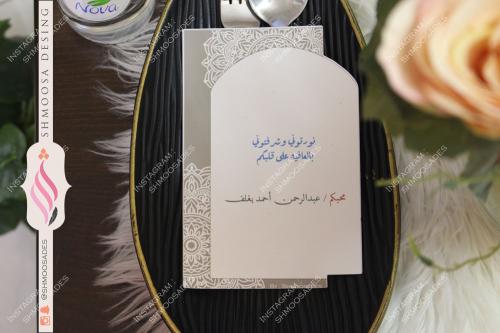 Nova
SHMOOSA DESING
@SHMOOSADES
نورتوني وشرفتوني
بالعافيه على قلبكم
محبكم / عبدالرحمن أحمد بغلف
INSTAGRAM :
SHMOOSADES